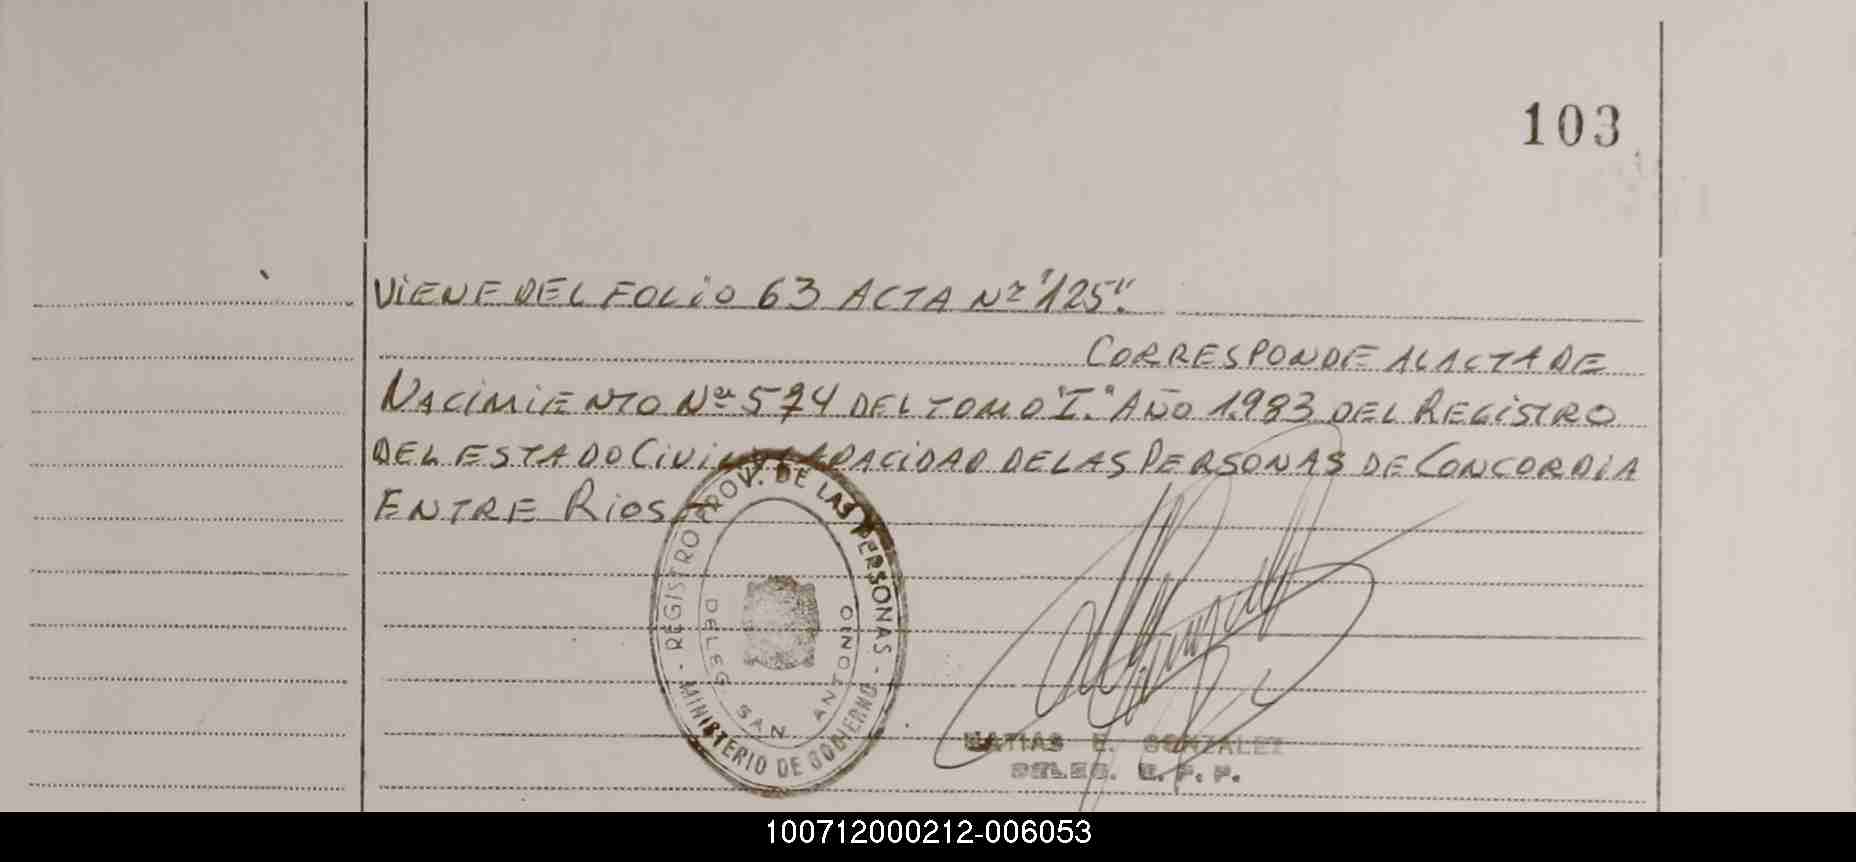 103
VIENE DEL FOLIO 63 ACTA Nº "125".
CORRESPONDE AL ACTA DE
NACIMIENTO Nº 574 DEL TOMO "I." AÑO 1.983 DEL REGISTRO
DEL ESTADO CIVIL Y CAPACIDAD DE LAS PERSONAS DE CONCORDIA
ENTRE RIOS.
- REGISTRO PROV. DE LAS PERSONAS -
MINISTERIO DE GOBIERNO
DELEG. SAN ANTONIO
MATIAS E. GONZALEZ
DELEG. R. P. P.
100712000212-006053